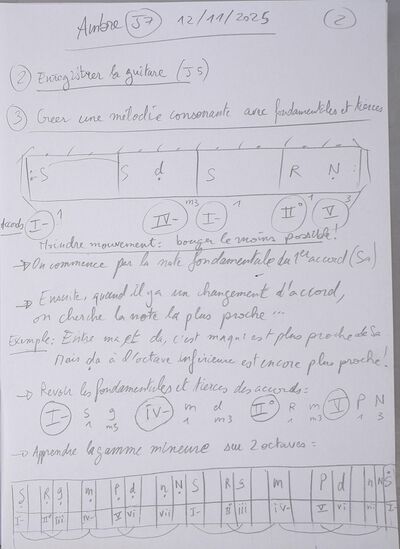 Ambre J7 12/11/2025 2
2 Enregistrer la guitare (J5)
3 Créer une mélodie consonante avec fondamentales et tierces
S S d S R N
Accords I- 1 IV- m3 I- 1 II° 1 V 3
Moindre mouvement : bouger le moins possible !
→ On commence par la note fondamentale du 1er accord (Sa)
→ Ensuite, quand il y a un changement d'accord,
on cherche la note la plus proche ...
Exemple : Entre ma et da, c'est ma qui est plus proche de Sa
Mais da à l'octave inférieure est encore plus proche !
→ Revoir les fondamentales et tierces des accords :
I- S g IV- m d II° R m V P N
1 m3 1 m3 1 m3 1 3
→ Apprendre la gamme mineure sur 2 octaves :
S R g m P d n N S R g m P d n N S
I- II° iii iv- V vi vii I- II° iii iv- V vi vii I-